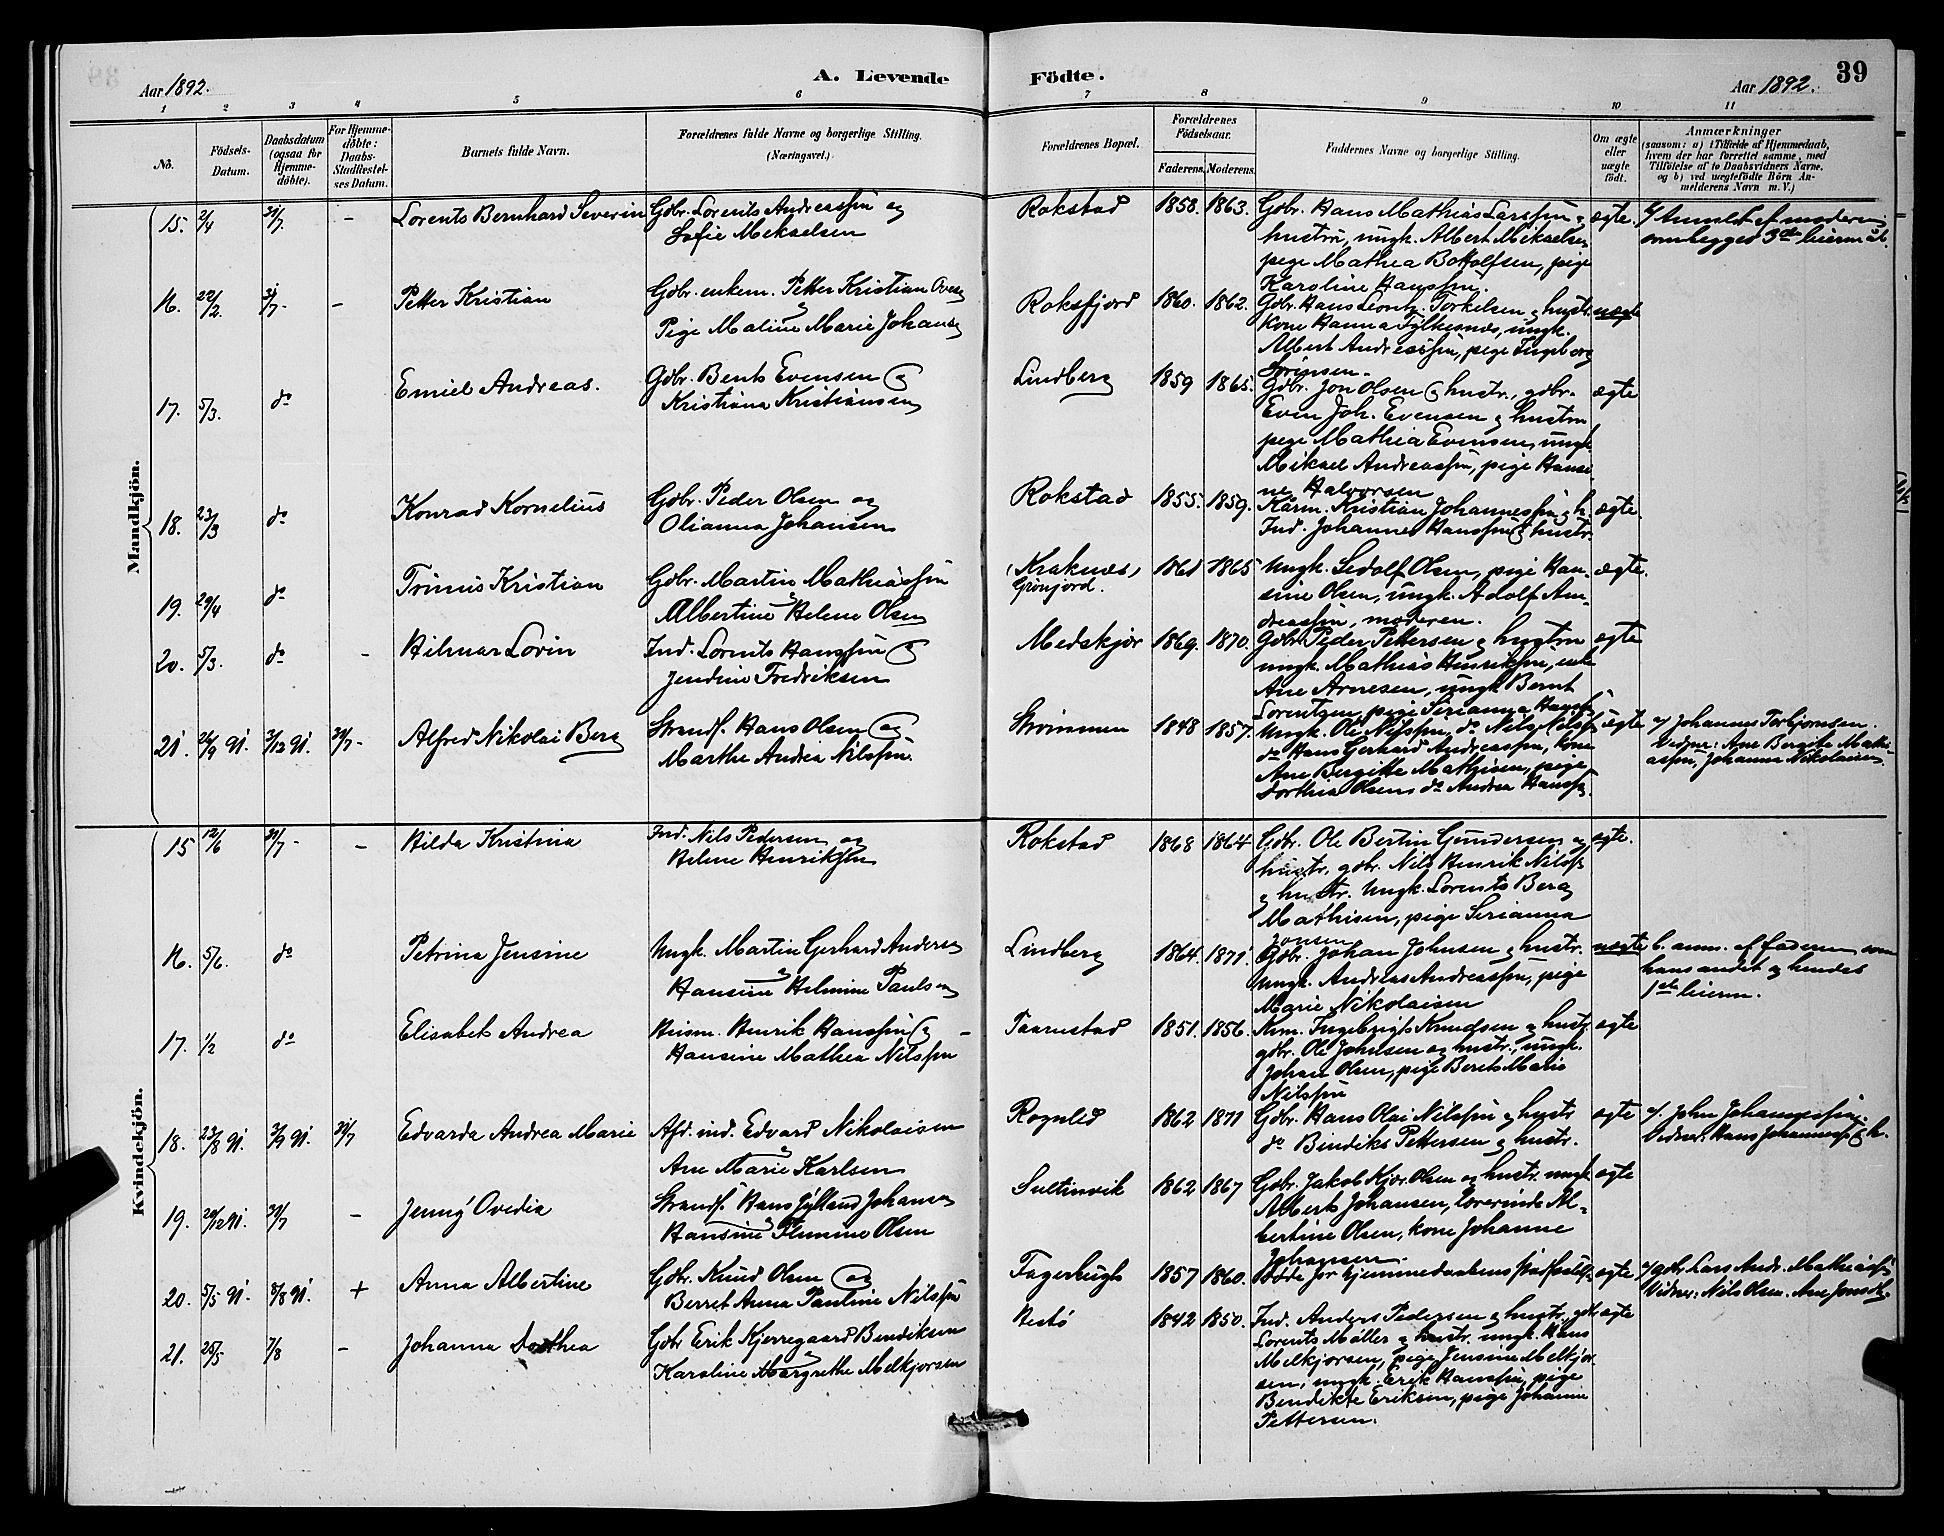 Aar 1892.
A. Levende Födte.
Aar 1892.
39
1 2 3 4 5 6 7 8 9 10 11
No. Födsels-Datum. Daabsdatum (ogsaa for Hjemme-døbte). For Hjemme-døbte: Daabs-Stadfæstel-ses Datum. Barnets fulde Navn. Forældrenes fulde Navne og borgerlige Stilling. (Næringsvei.) Forældrenes Bopæl. Forældrenes Födselsaar. Faderens. Moderens. Faddernes Navne og borgerlige Stilling. Om ægte eller uægte født. Anmærkninger (saasom: a) i Tilfælde af Hjemmedaab, hvem der har forrettet samme, med Tilföielse af to Daabsvidners Navne, og b) ved uægtefødte Börn An-melderens Navn m. V.)
Mandkjön.
15. 2/4 31/7. - Lorents Bernhard Severin Gdbr. Lorents Andreassen og
Sofie Mekaelsen
Rokstad 1858. 1863. Gdbr. Hans Mathias Larssen &
hustru, ungk. Albert Mikaelsen,
pige Mathea Bottolfsen, pige
Karoline Hanssen.
ægte.
16. 22/2. 31/7. - Petter Kristian Gdbr. enkem. Petter Kristian Ovesen
& Pige Maline Marie Johansen
Roksfjord 1860. 1862. Gdbr. Hans Leonts. Torkelsen & hustr.
Kone Hanna Fylkesnes, ungk.
Albert Andreassen, pige Ingeborg
Sørensen.
uægte
17. 5/3. do Emiel Andreas. Gdbr. Bents Evensen &
Kristiana Kristiansen
Lindberg 1859 1865. Gdbr. Jon Olsen & hustr., gdbr.
Even Joh. Evensen & hustru
pige Mathea Evensen, ungk.
Mikael Andreassen, pige Hansi-
ne Halvorsen
ægte
18. 23/3 do Konrad Kornelius Gdbr. Peder Olsen og
Olianna Johansen
Rokstad 1855. 1859. Kaarm. Kristian Johannessen & h.
Ind. Johannes Hanssen & hustr.
ægte.
19. 29/4 do Trinus Kristian Gdbr. Martin Mathiassen
& Albertine Helene Olsen
(Kraknes) Grønjord. 1861 1865 Ungk. Sedolf Olsen, pige Han-
sine Olsen, ungk. Adolf An-
dreassen, moderen.
ægte.
20. 5/3. do - Hilmar Lovin Ind. Lorents Hanssen &
Jendine Fredriksen
Medskjør 1869. 1870. Gdbr. Peder Pettersen & hustru
ungk. Mathias Henriksen, enke
Ane Arnesen, ungk Bernt
Lorentsen, pige Serianna Hanss.
ægte
21. 26/9 91. 3/12 91. 31/7 - Alfred Nikolai Berg Strands. Hans Olsen og
Marthe Andrea Nilssen.
Strømmen 1848 1857. Ungk. Ole Nilssen, do Nils Nilss.
do Hans Gerhard Andreassen, kone
Ane Bergitte Mathisen, pige
Dorthea Olsen, do Andrea Hanss.
ægte a/ Johannes Torbjornsen.
Vidner: Ane Bergitte Mathi-
assen, Johanna Nikolaisen.
Kvindekjön.
15 12/6 31/7 - - Hilda Kristina Ind. Nils Pedersen og
Helene Henriksen
Rokstad 1868 1864 Gdbr. Ole Bertin Gundersen &
hustr., gdbr. Nils Henrik Nilss.
& hustr. Ungk. Lorents Berg
Mathisen, pige Serianna
Jonsen
ægte.
16. 5/6. do Petrina Jensine Ungk. Martin Gerhard Andersen
& Hansine Helmine Paulsen
Lindberg 1864. 1871. Gdbr. Johan Johnsen & hustr.
Ungk. Andreas Andreassen, pige
Marie Nikolaisen
uægte b. anm. af faderen som
hans andet & hendes
1ste leierm.
17. 1/2 do Elisabet Andrea Husm. Henrik Hanssen &
Hansine Mathea Nilssen
Taarnstad 1851. 1856. Kvm. Ingebrigt Knudsen & hustr.
gdbr. Ole Johnsen og hustr., ungk.
Johan Olsen, pige Beret Marie
Nilssen
ægte
18. 23/8 91. 3/9 91. 31/7 Edvarda Andrea Marie Afd. ind. Edvard Nikolaisen
& Ane Marie Karlsen
Rognlid 1862 1871 Gdbr. Hans Olai Nilssen & hustr
do Bendiks Pettersen & hustr.
ægte a/. John Johannessen.
Vidner: Hans Johanness. & h.
19. 20/12 91. 31/7 - Jenny Ovedia Strands. Hans Jylland Johansen
& Hansine Flemine Olsen
Sultinvik 1862 1867 Gdbr. Jakob Kjør Olsen og hustr. ungk
Albert Johansen, lærerinde Al-
bertine Olsen, kone Johanne
Johansen.
ægte
20. 5/5 91. 8/8 91. + Anna Albertine Gdbr. Knud Olsen og
Berret Anna Pauline Nilssen
1857 1860. Døde før hjemmedaabens stadfæstels. ægte a/ gdbr. Lars Andr. Mathiass.
Vidner: Nils Olsen. Ane Jonsdt.
21. 25/5 7/8 - Johanna Dorthea Gdbr Erik Kjerregaard Bendiksen
& Karoline Margrethe Melkjorsen
Hestø 1842 1850. Ind. Anders Pedersen & hustr. gdbr
Lorents Møller & hustr. ungk. Hans
Melkjorsen, pige Jensine Melkjor-
sen, ungk. Erik Hanssen, pige
Bendikte Eriksen, pige Johanne
Pettersen.
ægte